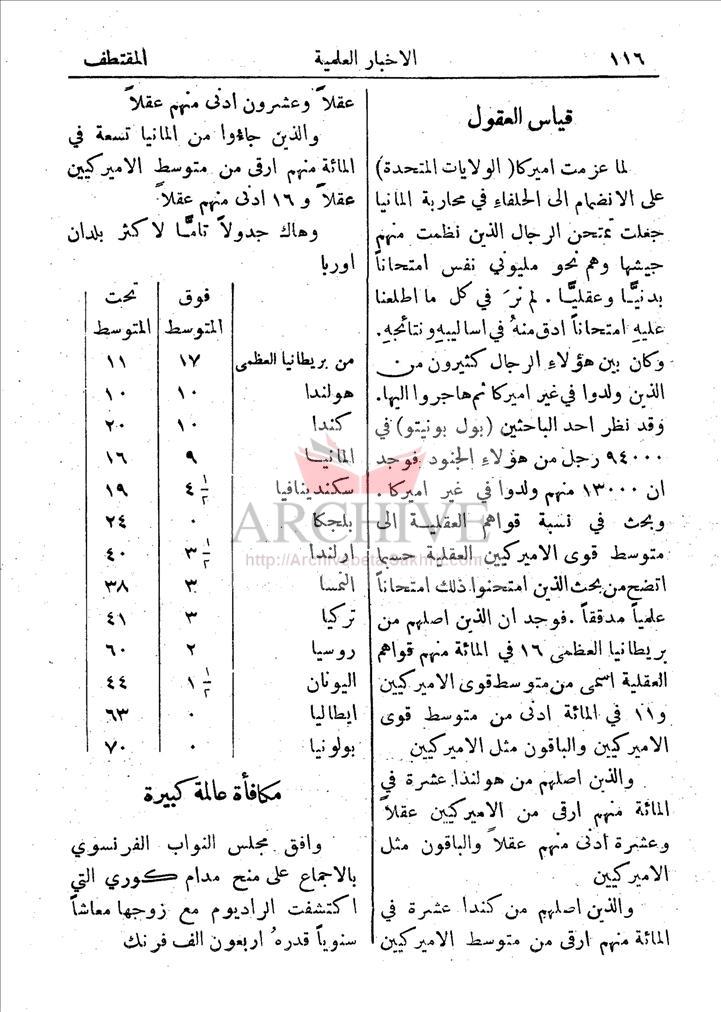 ١١٦ الاخبار العلمية المقتطف
قياس العقول
لما عزمت اميركا (الولايات المتحدة)
على الانضمام الى الحلفاء في محاربة المانيا
جعلت تمتحن الرجال الذين نظمت منهم
جيشها وهم نحو مليوني نفس امتحاناً
بدنيًّا وعقليًّا . لم نرَ في كل ما اطلعنا
عليهِ امتحاناً ادق منهُ في اساليبهِ ونتائجهِ.
وكان بين هؤلاءِ الرجال كثيرون من
الذين ولدوا في غير اميركا ثم هاجروا اليها.
وقد نظر احد الباحثين (بول بونيتو) في
٩٤٠٠٠ رجل من هؤلاءِ الجنود فوجد
ان ١٣٠٠٠ منهم ولدوا في غير اميركا .
وبحث في نسبة قواهم العقلية الى
متوسط قوى الاميركيين العقلية حسبما
اتضح من بحث الذين امتحنوا ذلك امتحاناً
علمياً مدققاً . فوجد ان الذين اصلهم من
بريطانيا العظمى ١٦ في المائة منهم قواهم
العقلية اسمى من متوسط قوى الاميركيين
و١١ في المائة ادنى من متوسط قوى
الاميركيين والباقون مثل الاميركيين
والذين اصلهم من هولندا عشرة في
المائة منهم ارقى من الاميركيين عقلاً
وعشرة ادنى منهم عقلاً والباقون مثل
الاميركيين
والذين اصلهم من كندا عشرة في
المائة منهم ارقى من متوسط الاميركيين
عقلاً وعشرون ادنى منهم عقلاً
والذين جاؤوا من المانيا تسعة في
المائة منهم ارقى من متوسط الاميركيين
عقلاً و ١٦ ادنى منهم عقلاً
وهاك جدولاً تامًّا لاكثر بلدان
اوربا
فوق تحت
المتوسط المتوسط
من بريطانيا العظمى ١٧ ١١
هولندا ١٠ ١٠
كندا ١٠ ٢٠
المانيا ٩ ١٦
سكندينافيا ٤ ١/٢ ١٩
بلجكا ٠ ٢٤
ارلندا ٣ ١/٢ ٤٠
النمسا ٣ ٣٨
تركيا ٣ ٤١
روسيا ٢ ٦٠
اليونان ١ ١/٢ ٤٤
ايطاليا ٠ ٦٣
بولونيا ٠ ٧٠
مكافأة عالمة كبيرة
وافق مجلس النواب الفرنسوي
بالاجماع على منح مدام كوري التي
اكتشفت الراديوم مع زوجها معاشاً
سنوياً قدرهُ اربعون الف فرنك
ARCHIVE